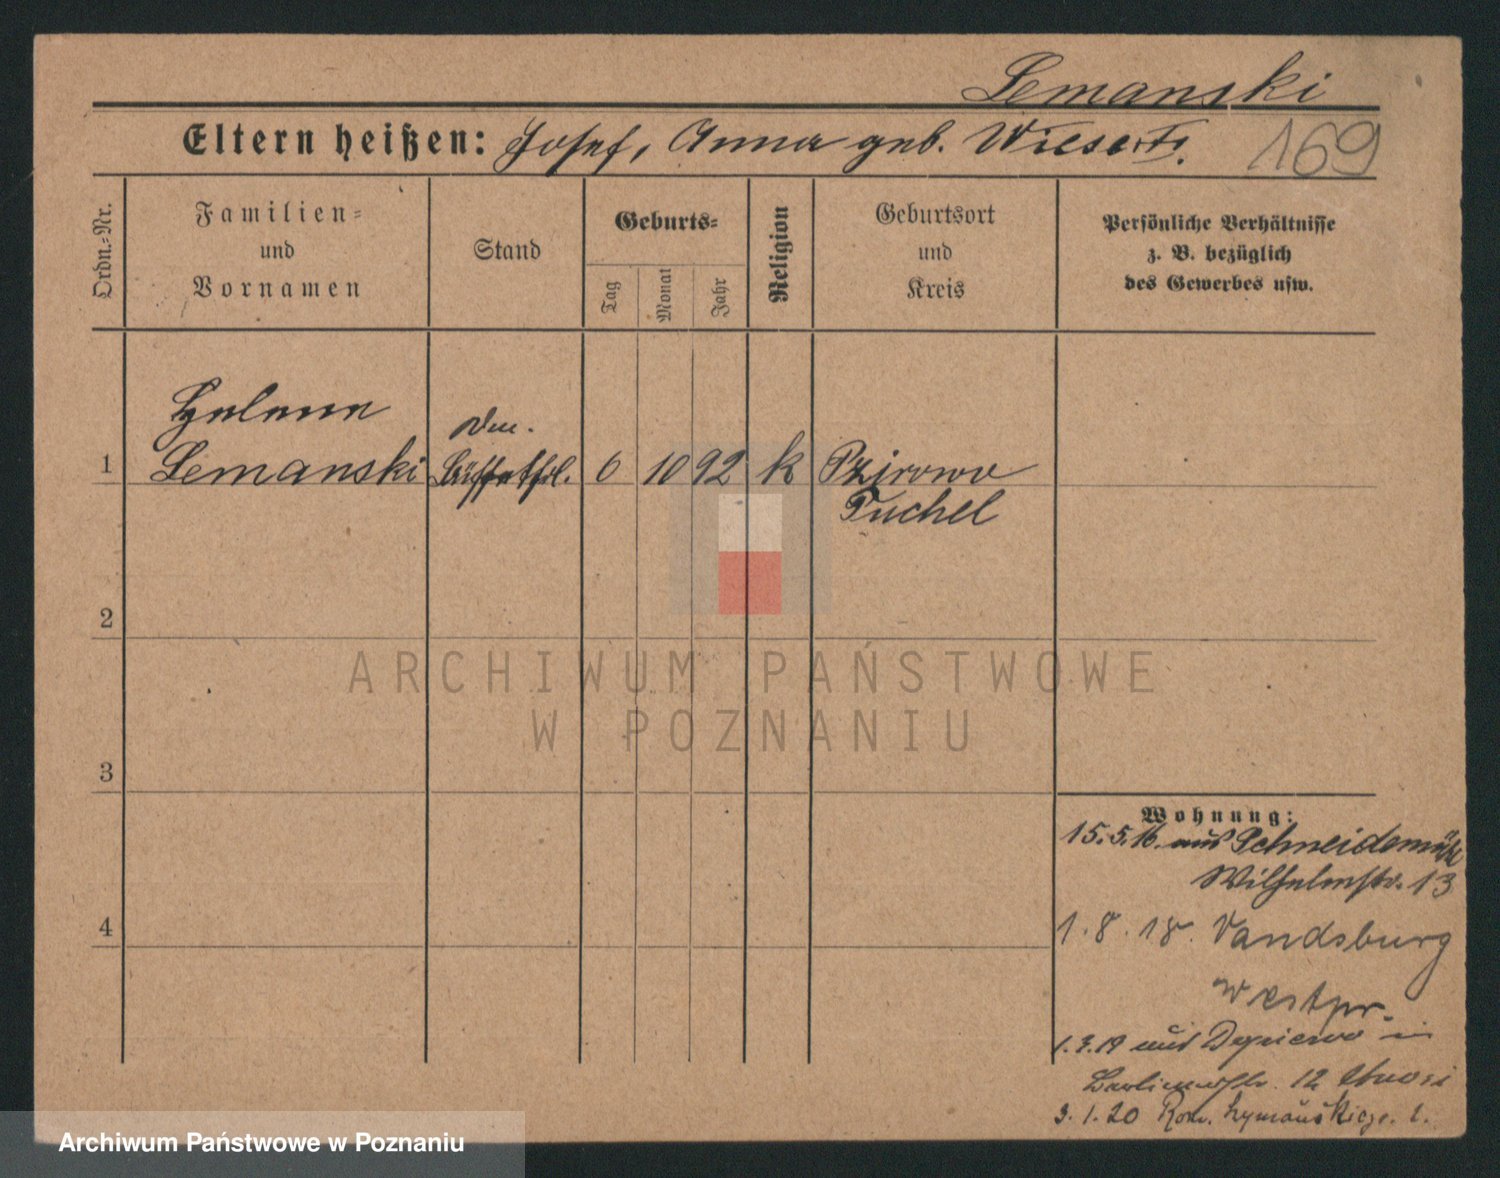 Lemanski
Eltern heißen: Josef, Anna geb. Wiese
169
Ordn.=Nr.
Familien=
und
Vornamen
Stand
Geburts=
Tag
Monat
Jahr
Religion
Geburtsort
und
Kreis
Persönliche Verhältnisse
z. B. bezüglich
des Gewerbes usw.
Helene
1 Lemanski Büffettfrl. 6 10 92 k
Tuchel
2
3
4
ARCHIWUM PAŃSTWOWE
W POZNANIU
Wohnung:
15.5.16. aus Schneidemühl
Wilhelmstr. 13
1.8.18. Vandsburg
Westpr.
1.3.19 aus in
12
3.1.20
Archiwum Państwowe w Poznaniu